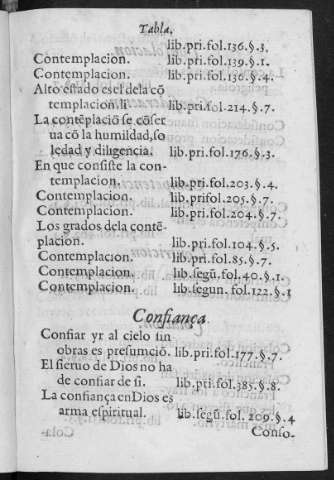 Tabla.
lib.pri.fol.136.§.3.
Contemplacion. lib.pri.fol.139.§.1.
Contemplacion. lib.pri.fol.136.§.4.
Alto estado es el dela cõ
templacion.li. lib.pri.fol.214.§.7.
La contẽplaciõ se cõser
ua cõ la humildad, so
ledad y diligencia. lib.pri.fol.176.§.3.
En que consiste la con-
templacion. lib.pri.fol.203.§.4.
Contemplacion. lib.prifol.205.§.7.
Contemplacion. lib.pri.fol.204.§.7.
Los grados dela contẽ-
placion. lib.pri.fol.104.§.5.
Contemplacion. lib.pri.fol.85.§.7.
Contemplacion. lib.segũ.fol.40.§.1.
Contemplacion. lib.segun.fol.122.§.1
Confiança
Confiar yr al cielo sin
obras es presumciõ. lib.pri.fol.177.§.7.
El sieruo de Dios no ha
de confiar de si. lib.pri.fol.385.§.8.
La confiança en Dios es
arma espiritual. lib.segũ.fol.209.§.4
Conso-